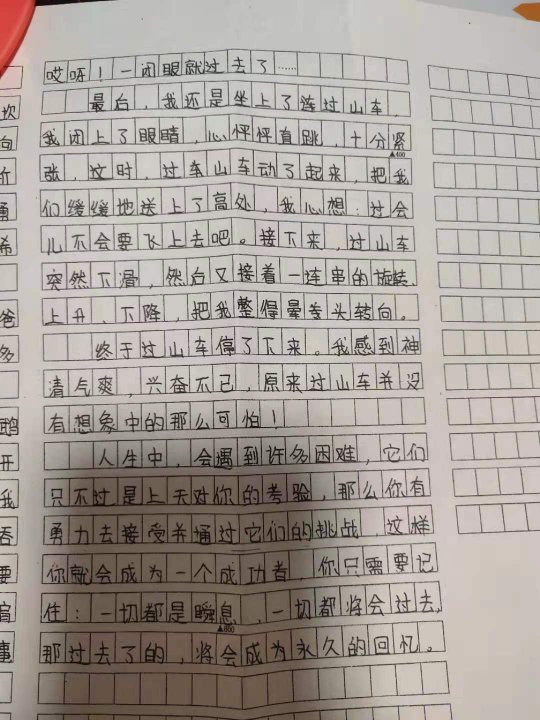 哎呀！一闭眼就过去了……
最后，我还是坐上了连过山车，
坎
我闭上了眼睛，心怦怦直跳，十分紧
向
▲400
张，这时，过车山车动了起来，把我
折
们缓缓地送上了高处，我心想：过会
勇
儿不会要飞上去吧。接下来，过山车
希
突然下滑，然后又接着一连串的旋转、
上升、下降，把我整得晕专头转向。
爸
终于过山车停了下来。我感到神
多
清气爽，兴奋不已，原来过山车并没
有想象中的那么可怕！
鹅
人生中，会遇到许多困难，它们
开
只不过是上天对你的考验，那么你有
我
勇力去接受并通过它们的挑战，这样
吞
你就会成为一个成功者，你只需要记
要
住：一切都是瞬息，一切都将会过去，
▲600
那过去了的，将会成为永久的回忆。
事